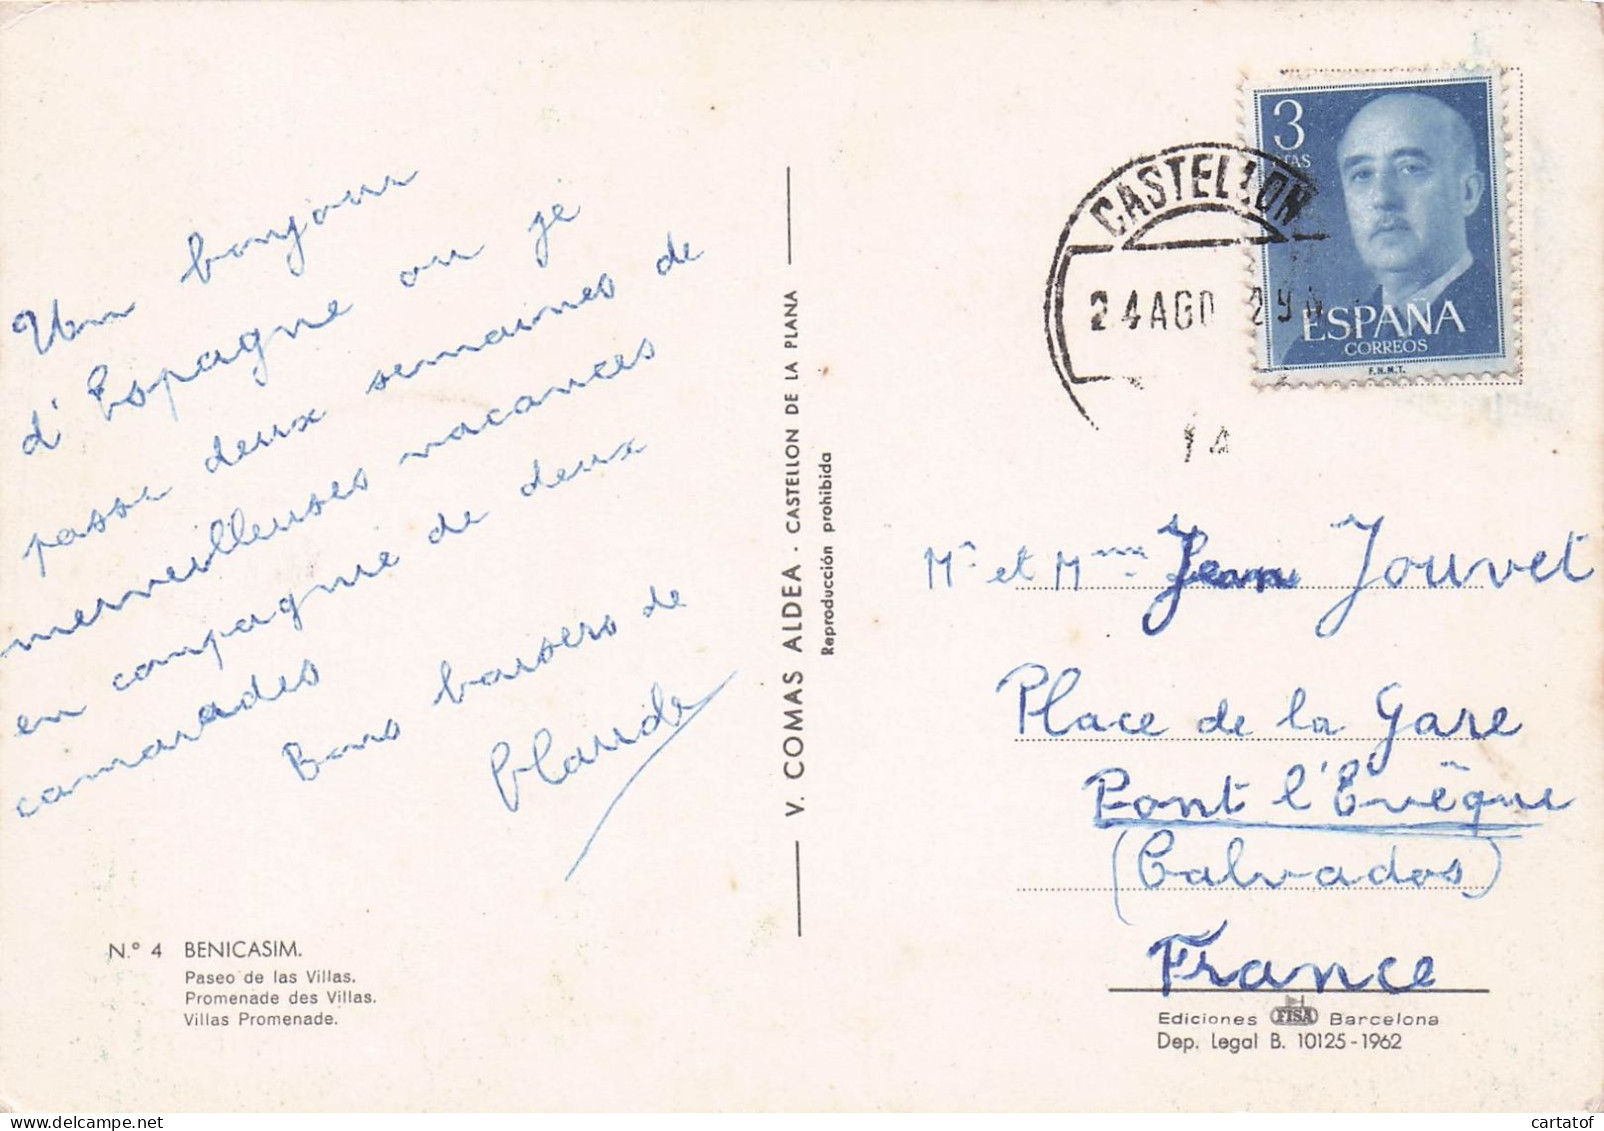 Un bonjour
d'Espagne ou je
passe deux semaines de
merveilleuses vacances
en compagnie de deux
camarades
Bons baisers de
Claude
N.° 4 BENICASIM.
Paseo de las Villas.
Promenade des Villas.
Villas Promenade.
V. COMAS ALDEA · CASTELLON DE LA PLANA
Reproducción prohibida
3
PTAS
ESPAÑA
CORREOS
F.N.M.T.
CASTELLON
24 AGO
14
Mr et Mme Jean Jouvet
Place de la Gare
Pont l'Evêque
(Calvados)
France
Ediciones FISA Barcelona
Dep. Legal B. 10125-1962
cartatof